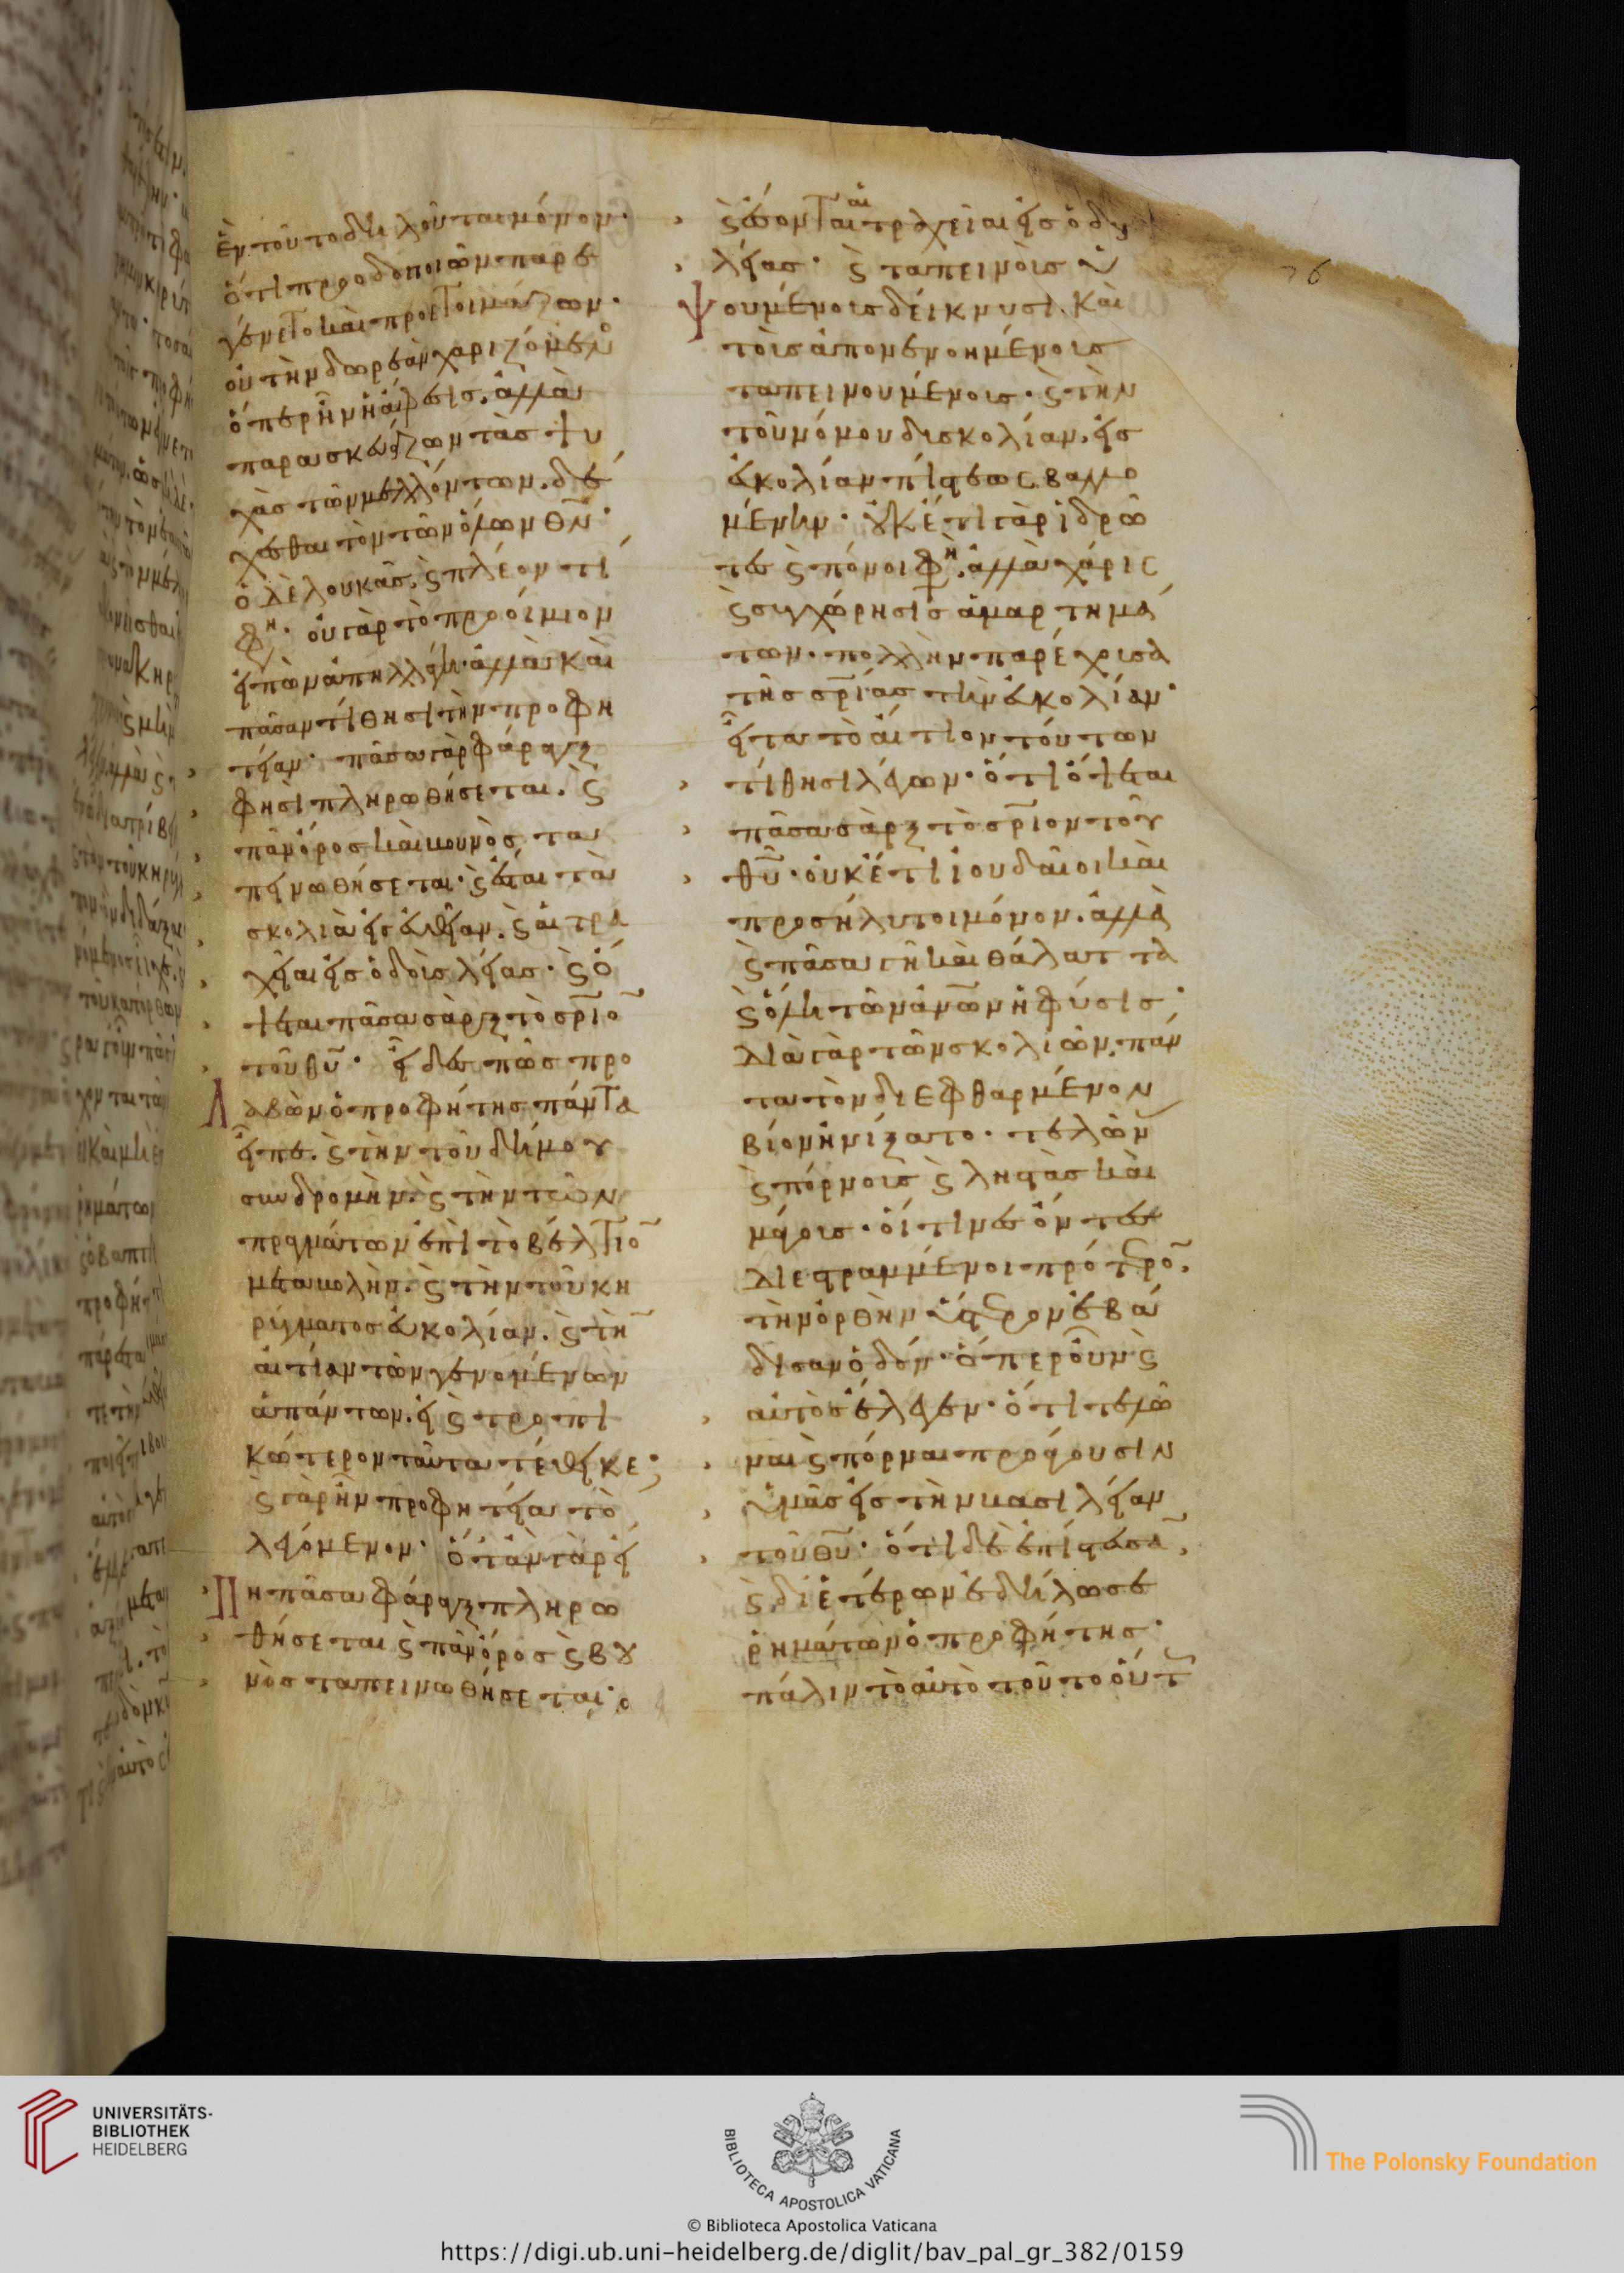 ἐν τούτο δηλοῦται μόνον·
ὅτι προοδοποιῶν παρε
γένετο καὶ προετοιμάζων·
οὐ τὴν δωρεὰν χαριζόμενο
ὅπερ ἦν ἡ ἄφεσις. ἀλλὰ
παρασκευάζων τὰς ψυ
χὰς τῶν μελλόντων. δέ
χεσθαι τὸν τῶν ὅλων θ̅ν̅·
ὁ δὲ λουκᾶς, ϛ πλέον τί
φη· οὐ γὰρ τὸ προοίμιον
εἰπὼν ἀπηλλάγη. ἀλλὰ καὶ
πᾶσαν τίθησι τὴν προφη
τείαν· πᾶσα γὰρ φάραγξ
φησὶ πληρωθήσεται. ϛ
πᾶν ὄρος καὶ βουνὸς τα
πεινωθήσεται· ϛ ἔσται τὰ
σκολιὰ εἰς εὐθεῖαν. ϛ αἱ τρα
χεῖαι εἰς ὁδοὺς λείας· ϛ ὄ
ψεται πᾶσα σὰρξ τὸ σ̅ρ̅ιο̅
τοῦ θ̅υ̅· εἶδες πῶς προ
λαβὼν ὁ προφήτης πάντα
εἶπε. ϛ τὴν τοῦ δήμου
συνδρομὴν. ϛ τὴν τῶν
πραγμάτων ἐπὶ τὸ βέλτιο̅
μεταβολὴν. ϛ τὴν τοῦ κη
ρύγματος εὐκολίαν. ϛ τὴ̅
αἰτίαν τῶν γενομένων
ἁπάντων. εἰ ϛ τροπι
κώτερον ταῦτα τέθεικε·
ϛ γὰρ ἦν προφητεία τὸ
λεγόμενον· ὅταν γὰρ εἴ
πη πᾶσα φάραγξ πληρω
θήσεται ϛ πᾶν ὄρος ϛ βου
νὸς ταπεινωθήσεται·
ϛ ἔσονται αἱ τραχεῖαι εἰς ὁδοὺς
λείας· ϛ ταπεινοὺς ὑ
ψουμένους δείκνυσι. καὶ
τοὺς ἀπονενοημένους
ταπεινουμένους· ϛ τὴν
τοῦ νόμου δισκολίαν. εἰς
εὐκολίαν πίστεως βαλλο
μένην· οὐκέτι γὰρ ἱδρῶ
τες ϛ πόνοι φη. ἀλλὰ χάρις
ϛ συγχώρησις ἁμαρτημά
των. πολλὴν παρέχουσα
τῆς σ̅ρ̅ίας τὴν εὐκολίαν·
εἶτα τὸ αἴτιον τούτων
τίθησι λέγων· ὅτι ὄψεται
πᾶσα σὰρξ τὸ σ̅ρ̅ιον τοῦ
θ̅υ̅· οὐκέτι ἰουδαῖοι καὶ
προσήλυτοι μόνον. ἀλλὰ
ϛ πᾶσα γῆ καὶ θάλαττα
ϛ ὅλη τῶν ἀν̅ω̅ν ἡ φύσις·
διὰ γὰρ τῶν σκολιῶν, πάν
τα τὸν διεφθαρμένον
βίον ἠνίξατο· τελών
ϛ πόρνους ϛ ληστὰς καὶ
μάγους· οἵτινες ὄντες
διεστραμμένοι πρότερο̅.
τὴν ὀρθὴν ὕστερον ἐβά
δισαν ὁδόν· ἅπερ οὖν ϛ
αὐτὸς ἔλεγεν· ὅτι τελῶ
ναι ϛ πόρναι προάγουσιν
ὑμᾶς εἰς τὴν βασιλείαν
τοῦ θ̅υ̅· ὅτι δὲ ἐπίστευσα̅.
ϛ δι ἑτέρων ἐδήλωσε
ῥημάτων ὁ προφήτης·
πάλιν τὸ αὐτὸ τοῦτο οὕτ
76
UNIVERSITÄTS-
BIBLIOTHEK
HEIDELBERG
BIBLIOTECA APOSTOLICA VATICANA
The Polonsky Foundation
© Biblioteca Apostolica Vaticana
https://digi.ub.uni-heidelberg.de/diglit/bav_pal_gr_382/0159